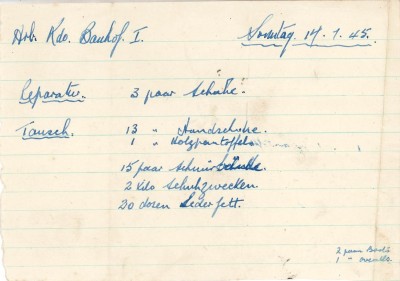 Arb. Kdo. Bauhof. I.
Sonntag. 14. 1. 45.
Reparatur. 3 paar Schuhe.
Tausch. 13 " Handschuhe.
1 " Holzpantoffeln
15 paar Schnürschuhe
2 Kilo Schuhzwecken
20 dosen Lederfett.
2 paar Boots
1 " overalls.